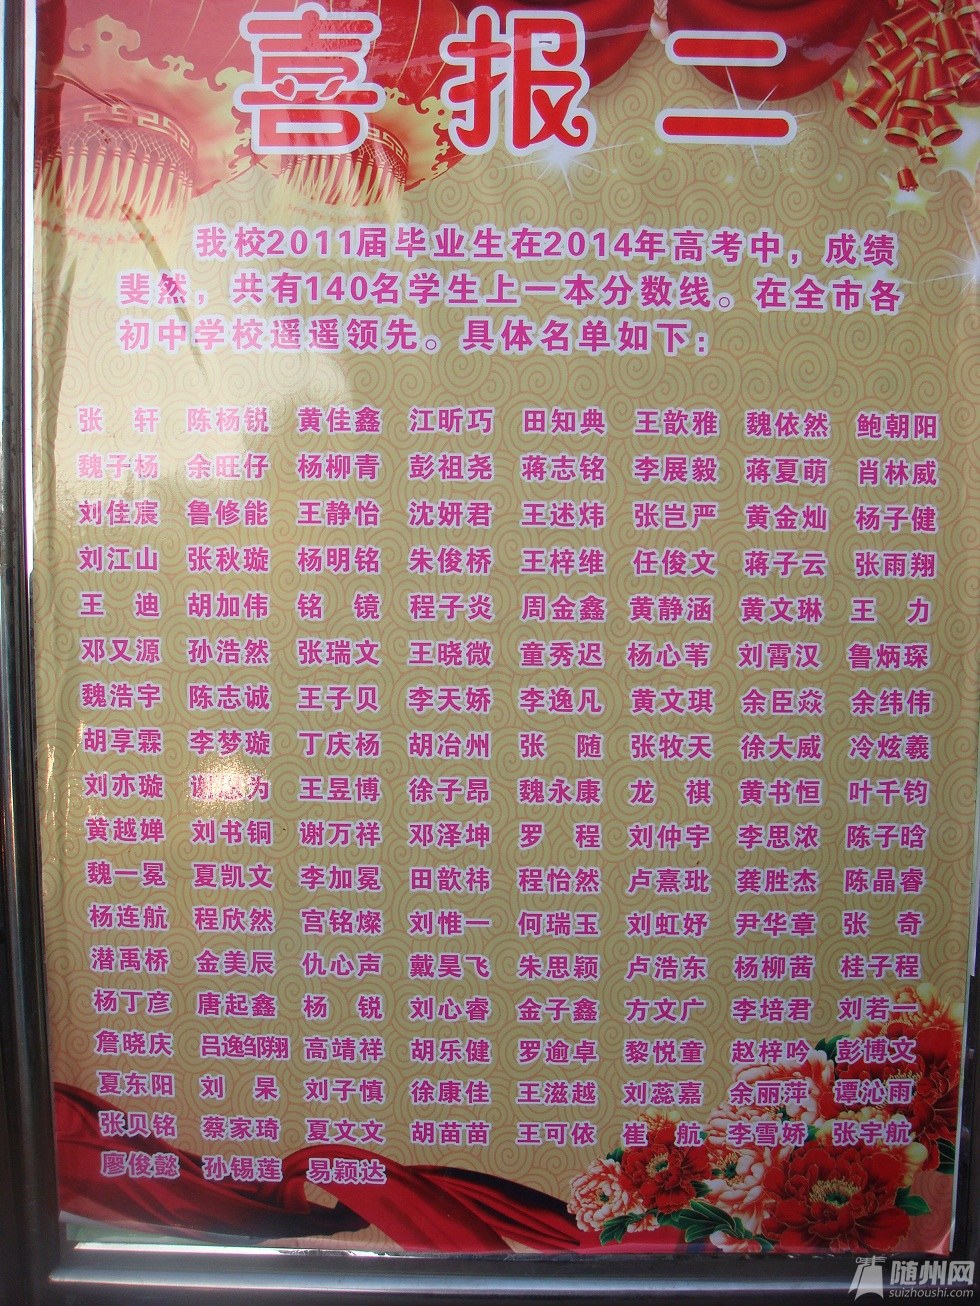 喜报二
我校2011届毕业生在2014年高考中，成绩
斐然，共有140名学生上一本分数线。在全市各
初中学校遥遥领先。具体名单如下：
张 轩 陈杨锐 黄佳鑫 江昕巧 田知典 王歆雅 魏依然 鲍朝阳
魏子杨 余旺仔 杨柳青 彭祖尧 蒋志铭 李展毅 蒋夏萌 肖林威
刘佳宸 鲁修能 王静怡 沈妍君 王述炜 张岂严 黄金灿 杨子健
刘江山 张秋璇 杨明铭 朱俊桥 王梓维 任俊文 蒋子云 张雨翔
王 迪 胡加伟 铭 镜 程子炎 周金鑫 黄静涵 黄文琳 王 力
邓又源 孙浩然 张瑞文 王晓微 童秀迟 杨心苇 刘霄汉 鲁炳琛
魏浩宇 陈志诚 王子贝 李天娇 李逸凡 黄文琪 余臣焱 余纬伟
胡享霖 李梦璇 丁庆杨 胡冶州 张 随 张牧天 徐大威 冷炫羲
刘亦璇 谢 为 王昱博 徐子昂 魏永康 龙 祺 黄书恒 叶千钧
黄越婵 刘书铜 谢万祥 邓泽坤 罗 程 刘仲宇 李思浓 陈子晗
魏一冕 夏凯文 李加冕 田歆祎 程怡然 卢熹玭 龚胜杰 陈晶睿
杨连航 程欣然 宫铭燦 刘惟一 何瑞玉 刘虹妤 尹华章 张 奇
潜禹桥 金美辰 仇心声 戴昊飞 朱思颖 卢浩东 杨柳茜 桂子程
杨丁彦 唐起鑫 杨 锐 刘心睿 金子鑫 方文广 李培君 刘若一
詹晓庆 吕逸邹翔 高靖祥 胡乐健 罗逾卓 黎悦童 赵梓吟 彭博文
夏东阳 刘 杲 刘子慎 徐康佳 王滋越 刘蕊嘉 余丽萍 谭沁雨
张贝铭 蔡家琦 夏文文 胡苗苗 王可依 崔 航 李雪娇 张宇航
廖俊懿 孙锡莲 易颖达
随州网
suizhoushi.com